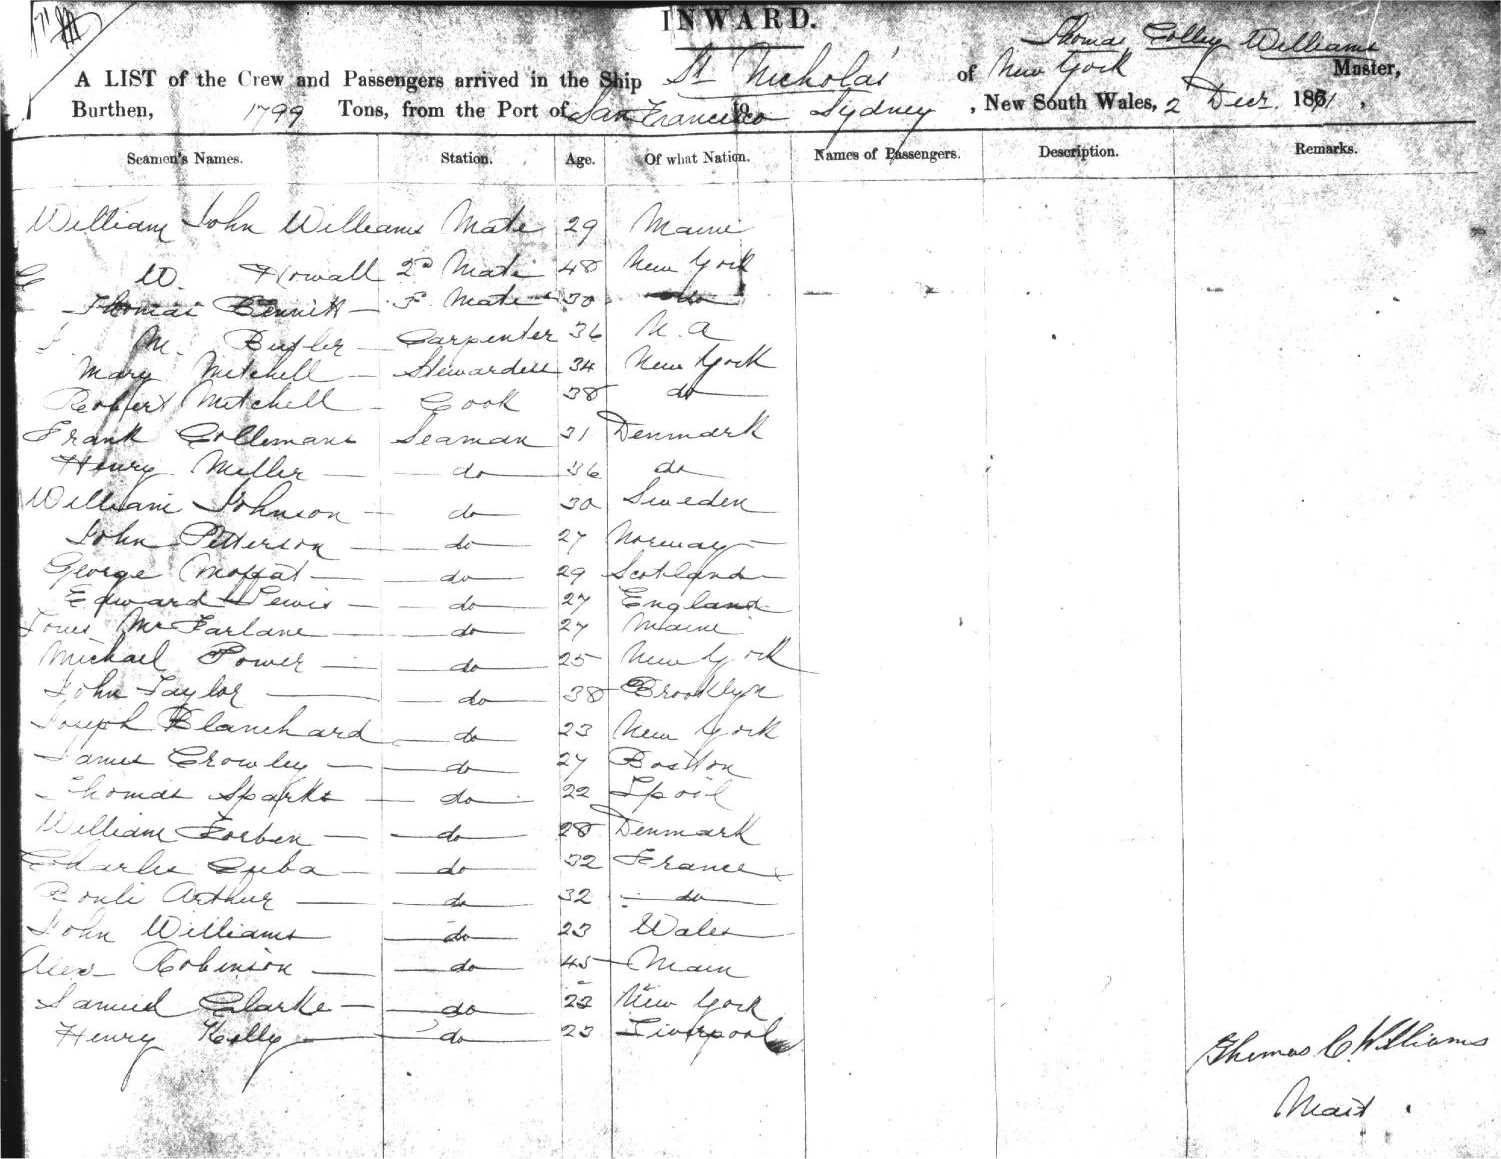 INWARD.
Thomas Colley Williams
A LIST of the Crew and Passengers arrived in the Ship St Nicholas of New York Master,
Burthen, 1799 Tons, from the Port of San Francisco to Sydney, New South Wales, 2 Decr. 1871,
Seamen's Names. Station. Age. Of what Nation. Names of Passengers. Description. Remarks.
William John Williams Mate 29 Maine
G W. Howall 2d Mate 48 New York
Thomas Bennett 3 Mate 30 do
M. Butler Carpenter 36 N. A
Mary Mitchell Stewardess 34 New York
Robert Mitchell Cook 38 do
Frank Collemans Seaman 31 Denmark
Henry Miller do 36 do
William Johnson do 30 Sweden
John Petterson do 27 Norway
George Moffat do 29 Scotland
Edward Lewis do 27 England
McFarlane do 27 Maine
Michael Power do 25 New York
John Taylor do 38 Brooklyn
Joseph Blanchard do 23 New York
James Crowley do 27 Boston
Thomas Sparks do 22 Lpoil
William Forben do 28 Denmark
Charlie Cuba do 32 France
Arthur do 32 do
John Williams do 23 Wales
Alex Robinson do 45 Main
Samuel Clarke do 22 New York
Henry Kelly do 23 Liverpool
Thomas C. Williams
Mast